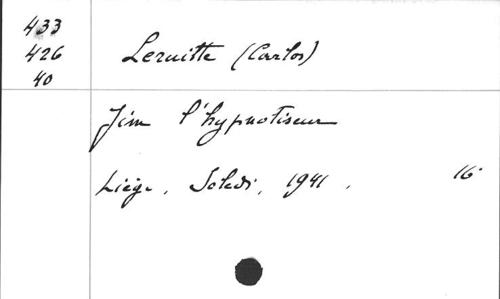 433
426 Leruitte (Carlos)
40
Jim l'hypnotiseur
Liège, Soledi, 1941. 16°